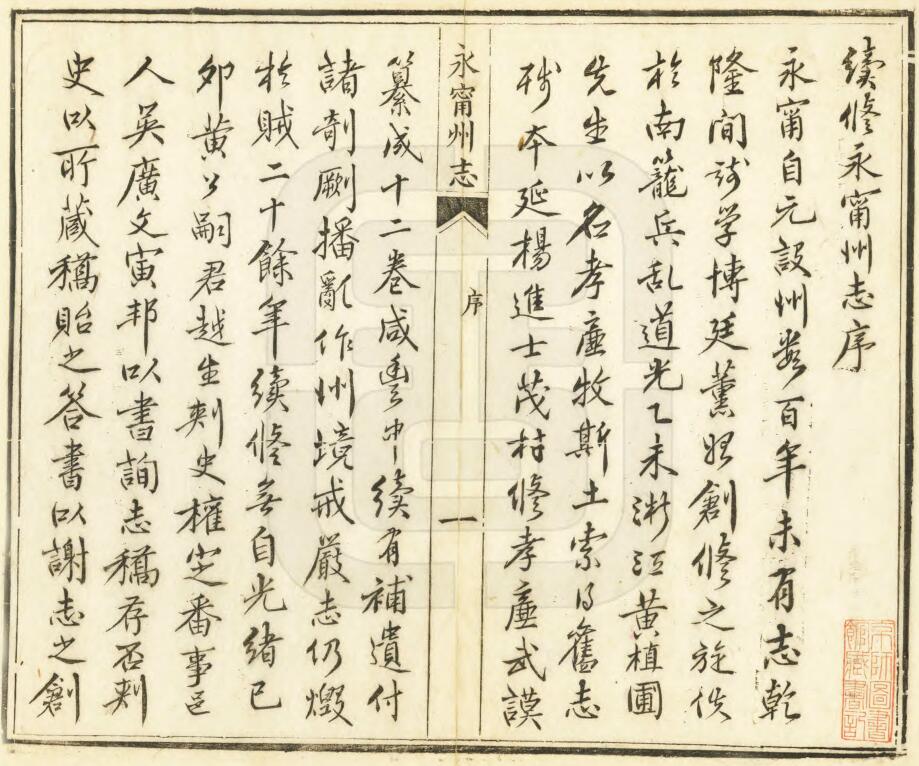 續修永甯州志序
永甯自元設州数百年未有志乾
隆間沙学博廷薰始創修之旋佚
於南籠兵乱道光乙未浙江黄植圃
先生以名孝廉牧斯土索得舊志
抄本延楊進士茂材修孝廉武謨
永甯州志
序
一
纂成十二卷咸豐中續有補遺付
諸剞劂播亂作州境戒嚴志仍燬
於賊二十餘年續修無自光緒己
卯黄公嗣君越生刺史權定番事邑
人吳廣文寅邦以書詢志稿存否刺
史以所藏稿貽之答書以謝志之創